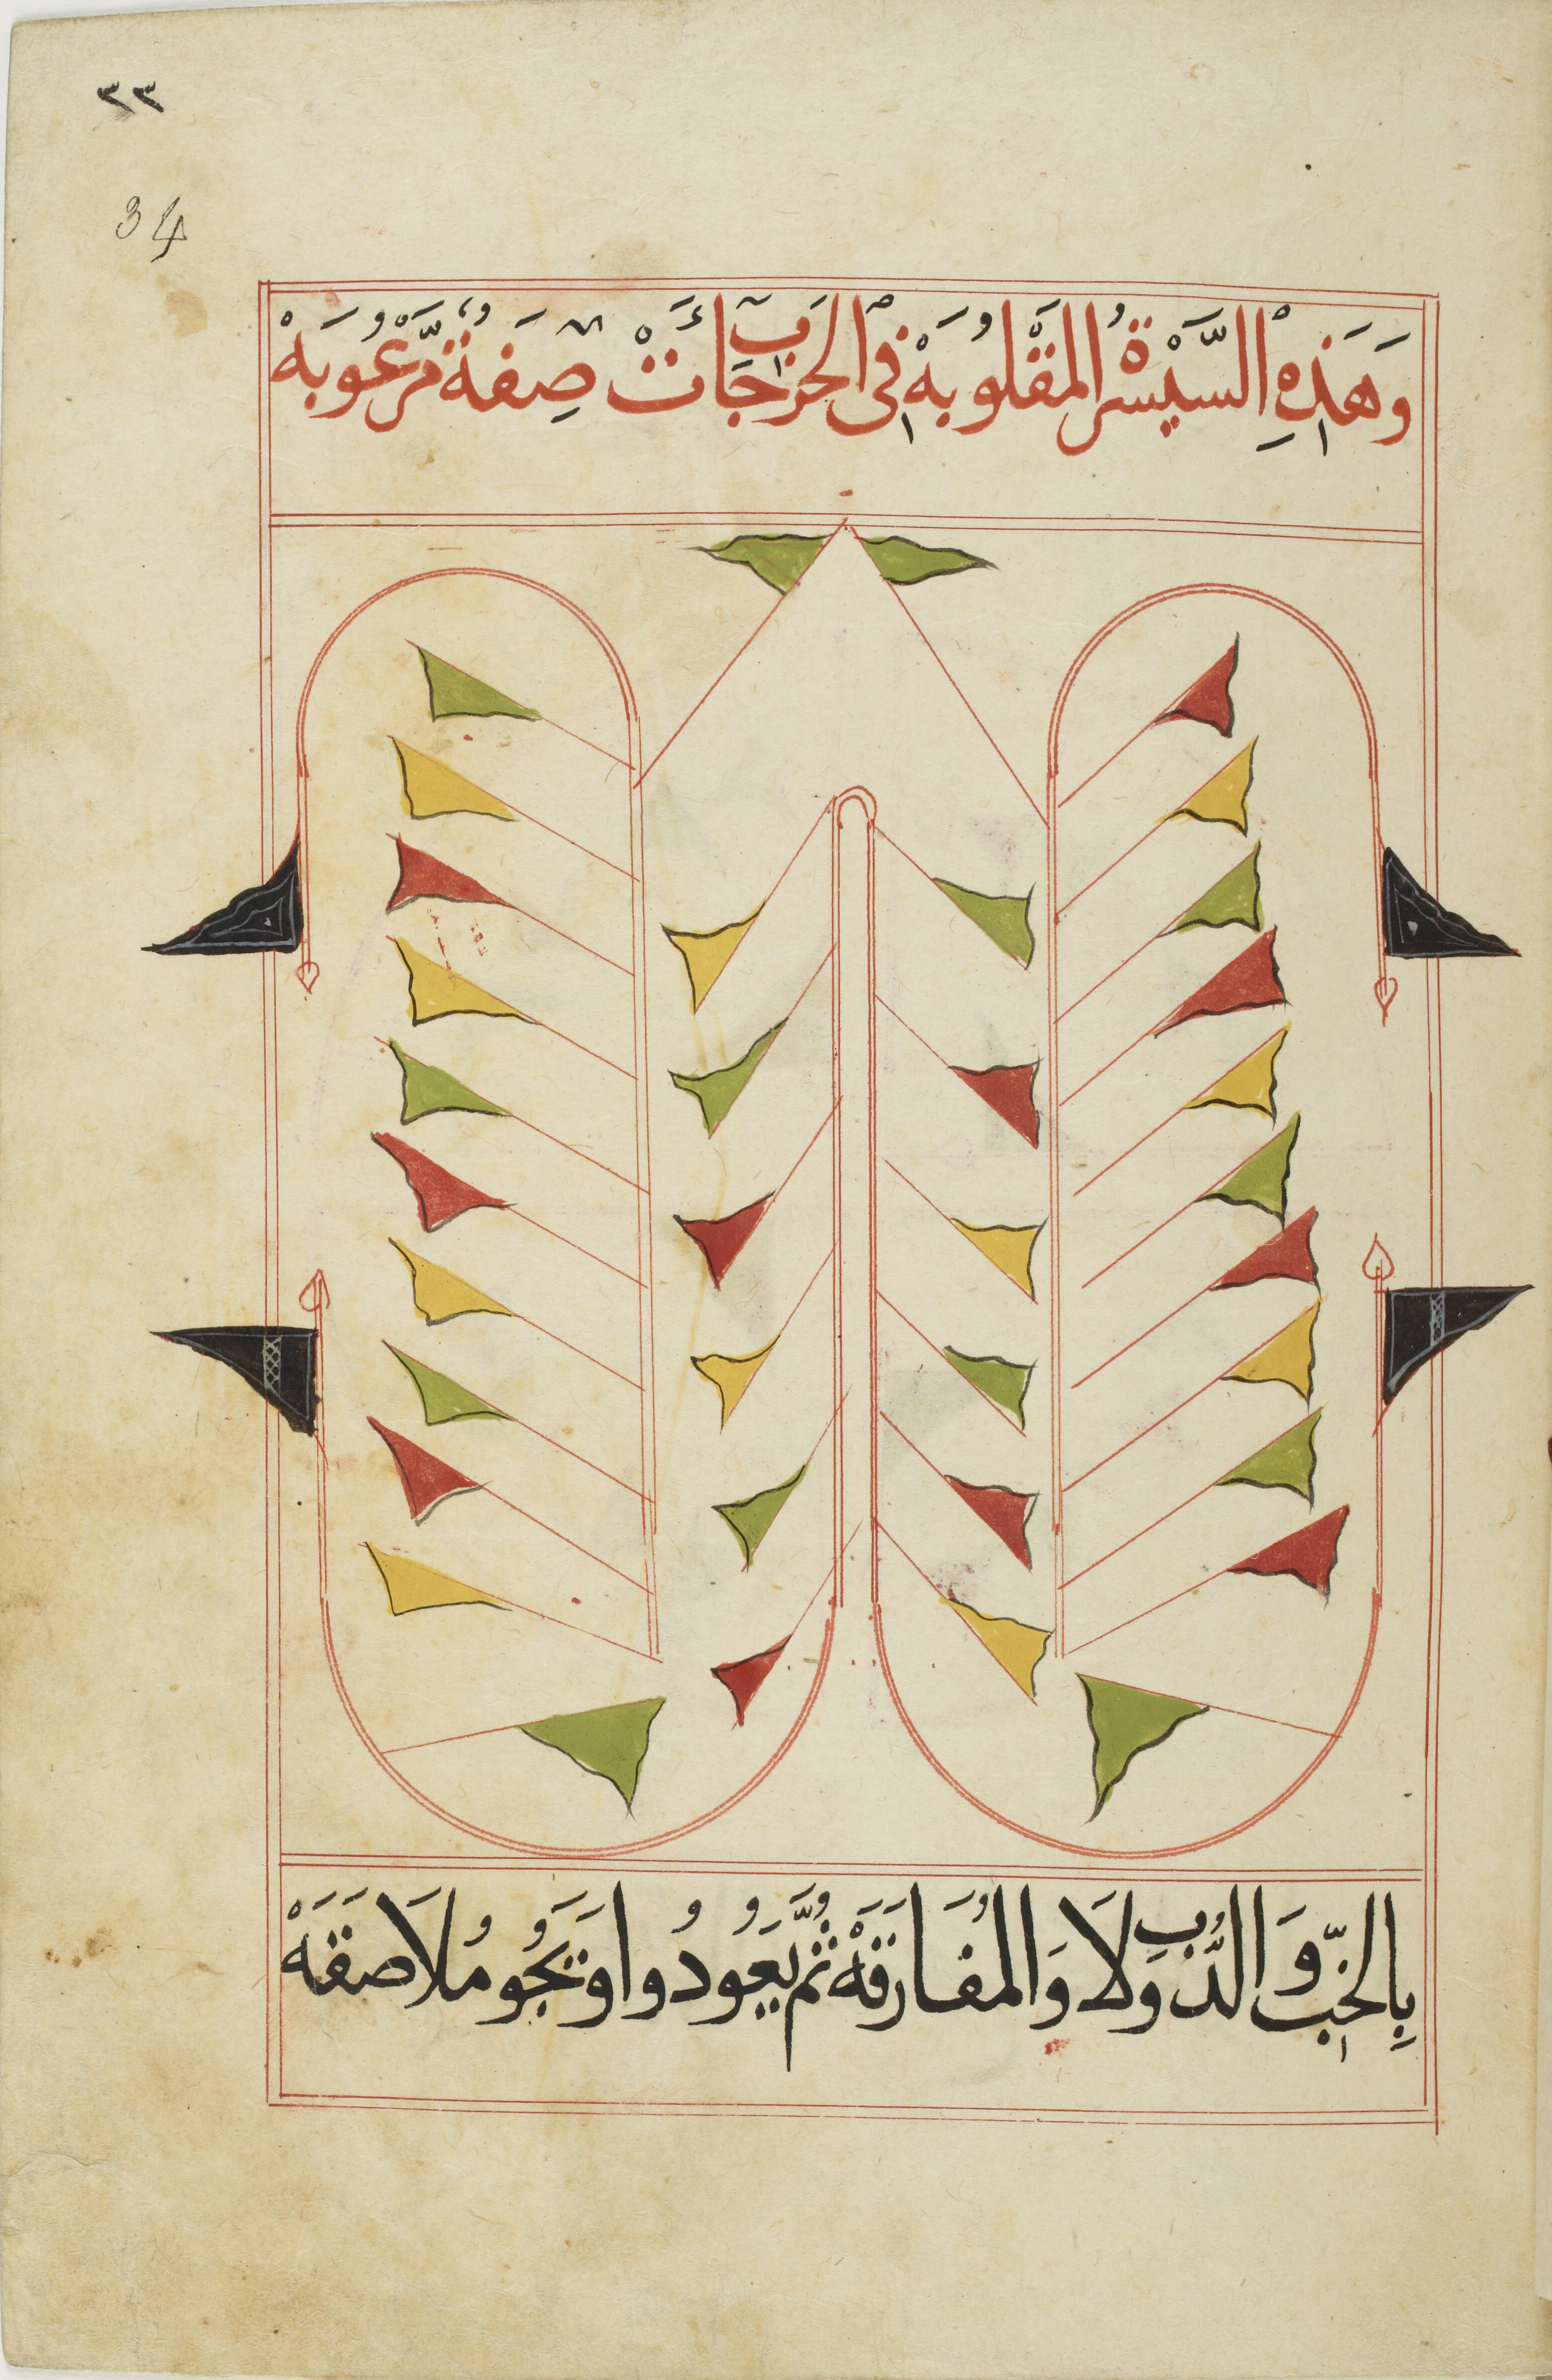 ٣٣
34
وَهَذِهِ السَّيْسَرة المَقْلُوبَهْ فِى الحَرب جَائَتْ صِفَةٌ مَّرْعُوبَهْ
بِالخِبِّ وَالدُّبِ وَلَا وَالمُفَارَقَهْ ثُمَّ يَعُودُوا وَيَجُو مُلَاصَقَهْ